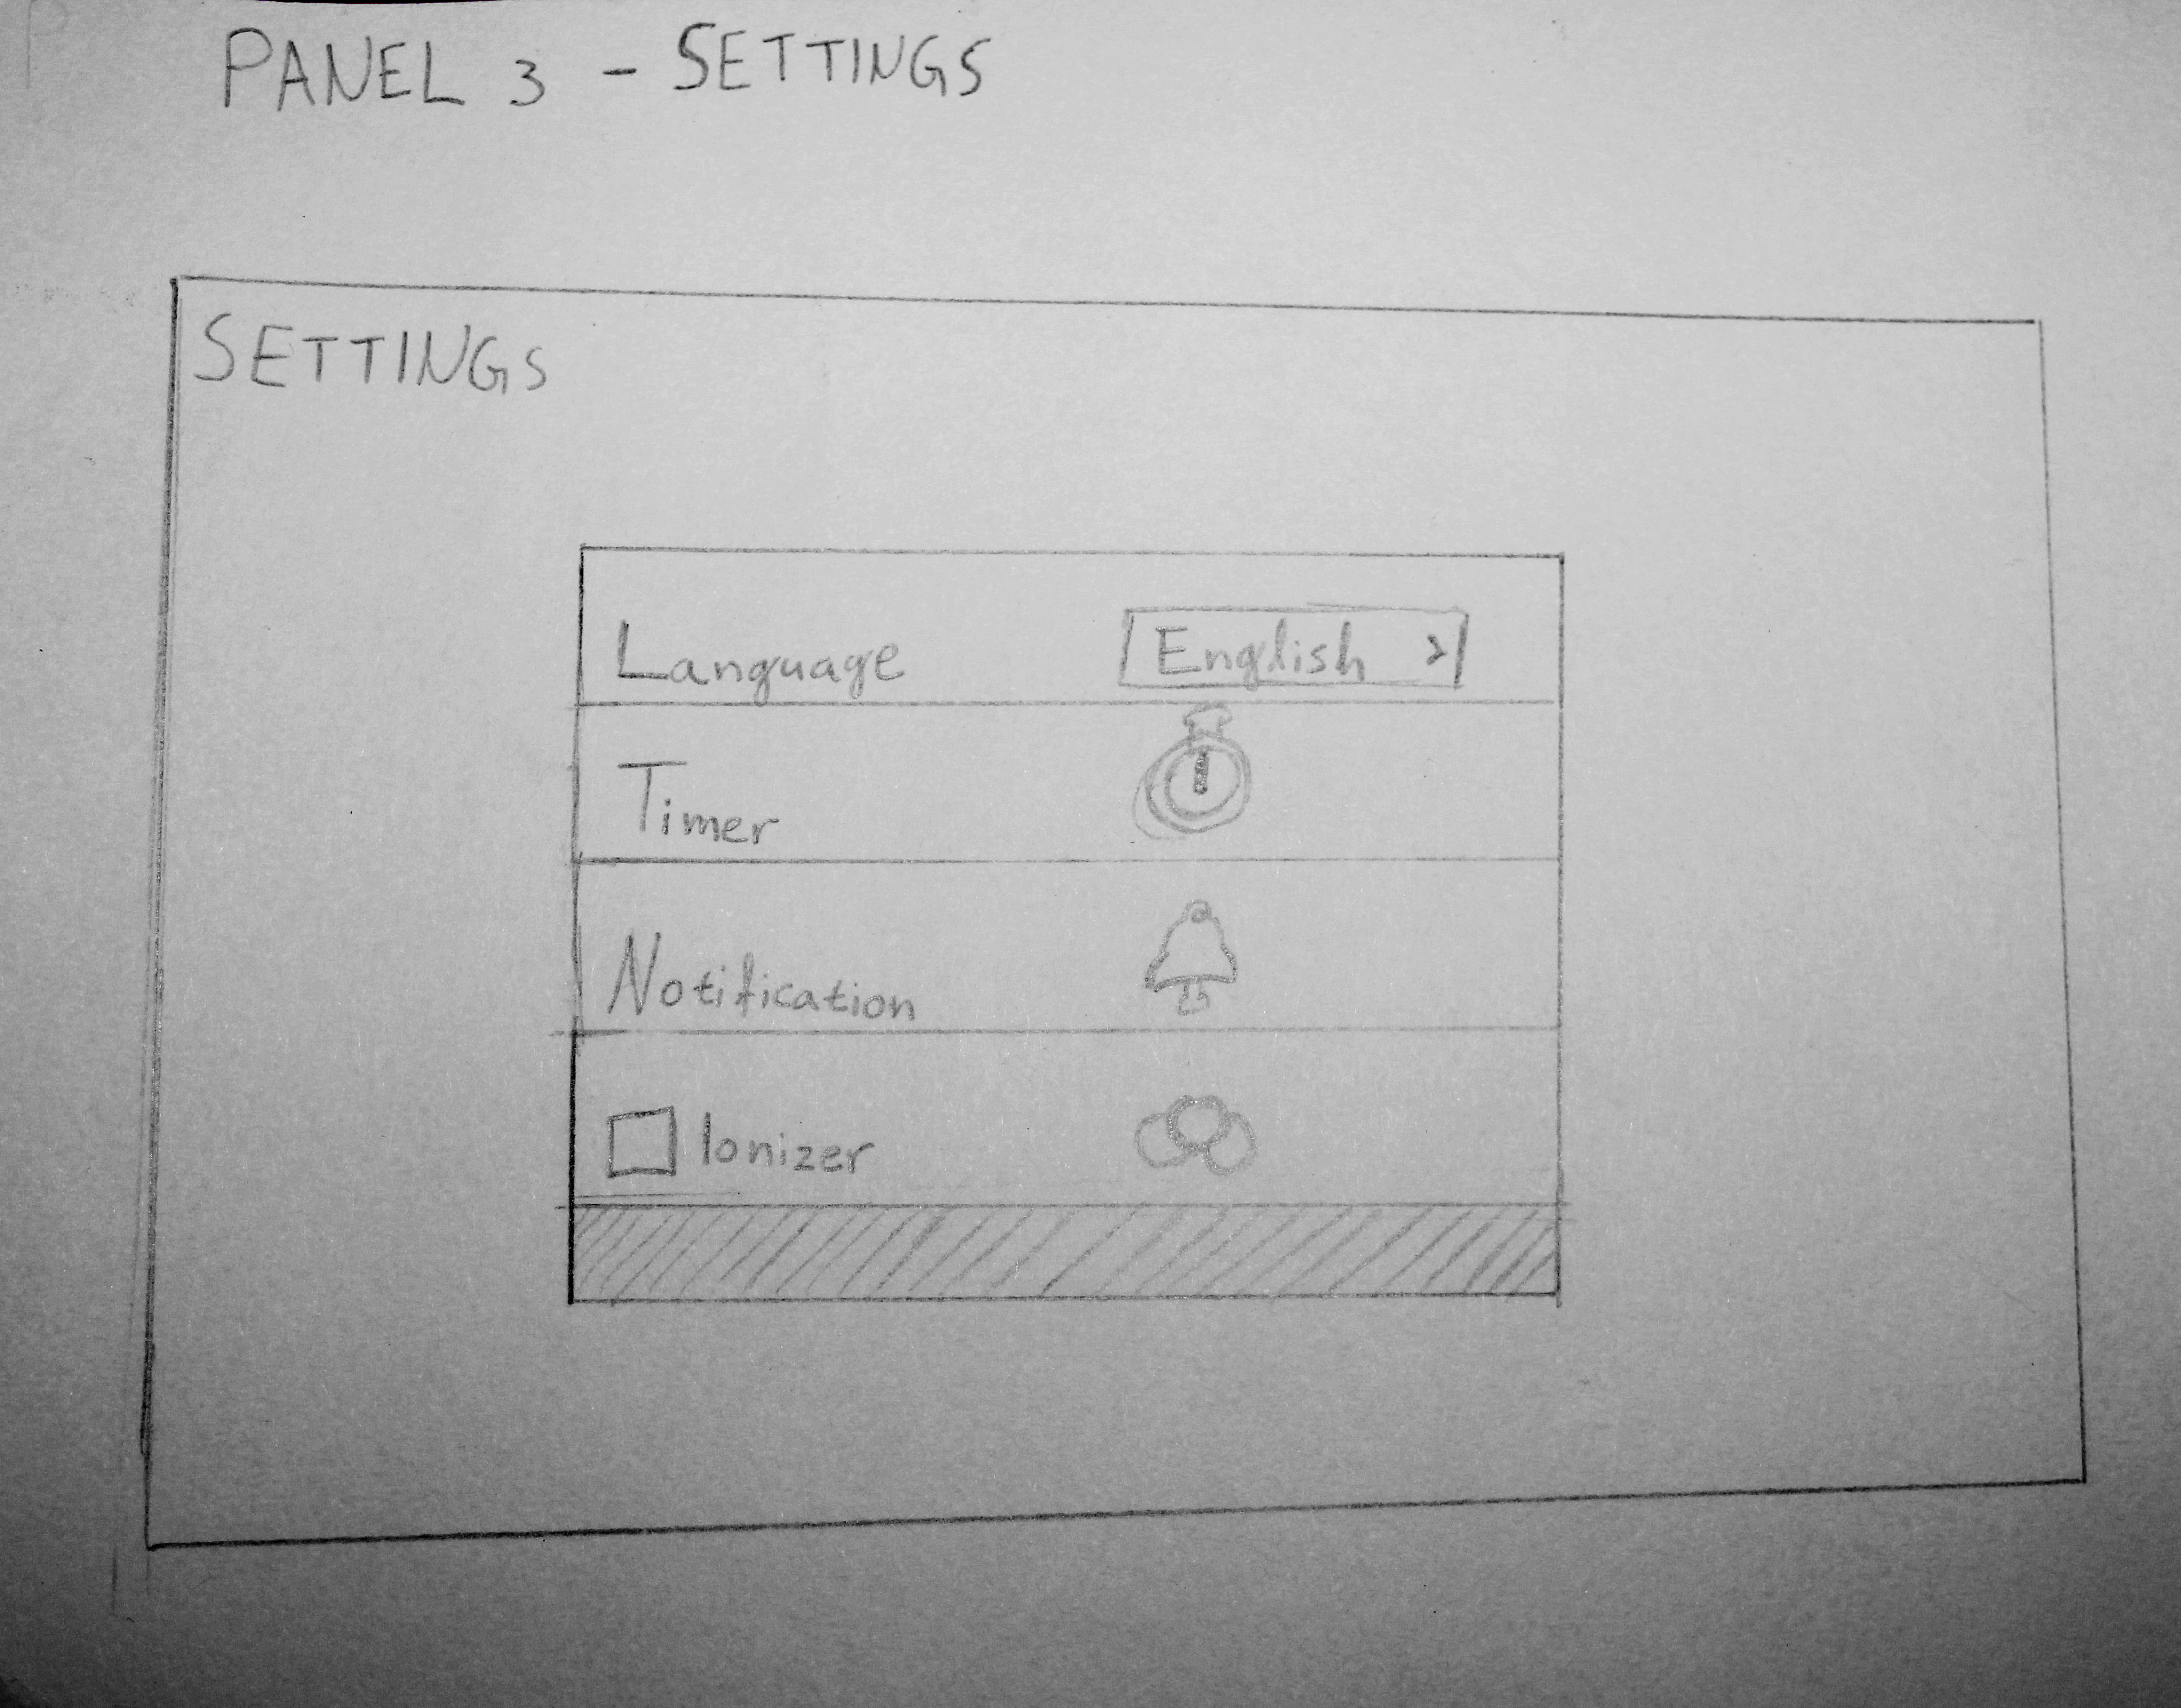 PANEL 3 - SETTINGS
SETTINGS
Language English >
Timer
Notification
Ionizer